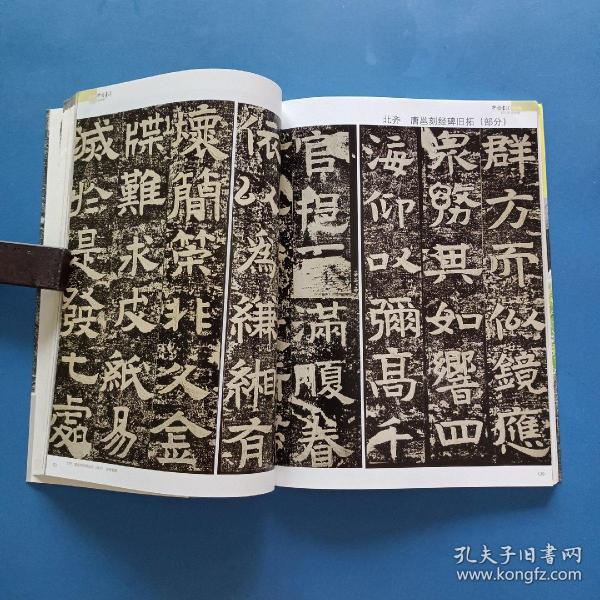 北齐 唐邕刻经碑旧拓（部分）
群方而似鏡應
眾務其如響四
海仰以彌高千
官挹滿腹眷
依以為縑緗有
壞簡策非久金
牒難求皮紙易
滅於是發七處
孔夫子旧书网
www.kongfz.com